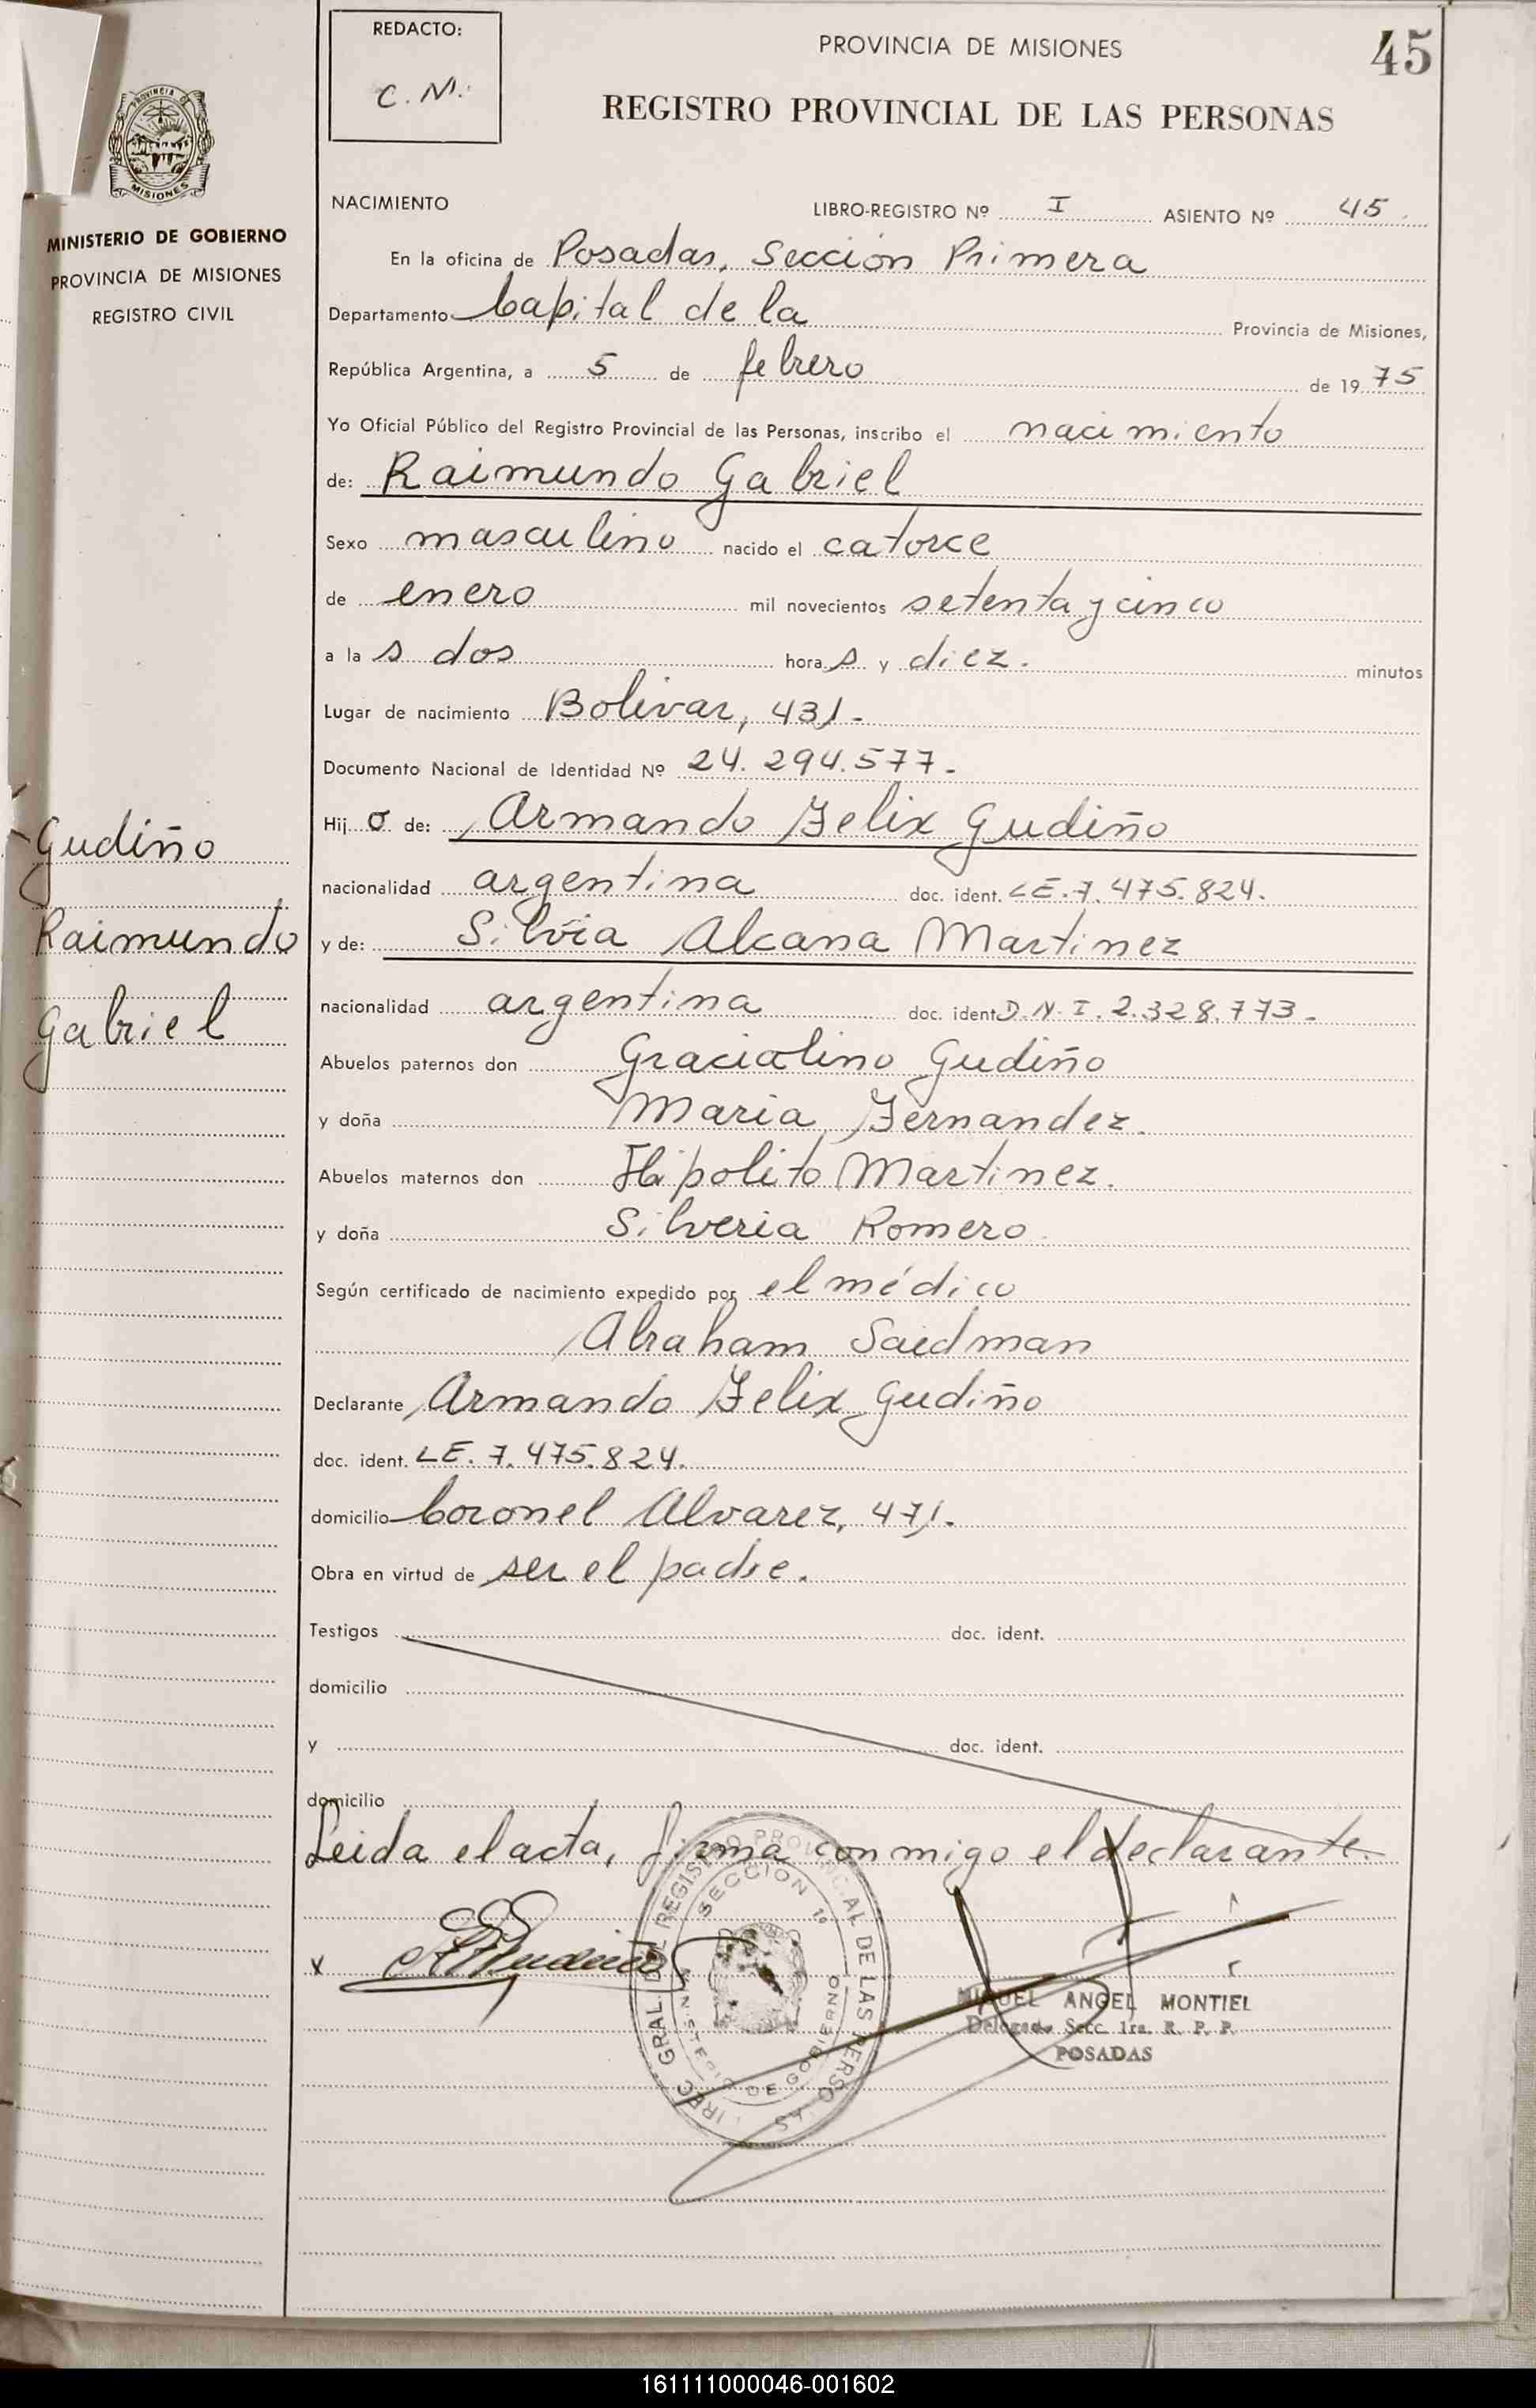 REDACTO:
C. M.
PROVINCIA DE MISIONES
45
REGISTRO PROVINCIAL DE LAS PERSONAS
PROVINCIA DE
MISIONES
MINISTERIO DE GOBIERNO
PROVINCIA DE MISIONES
REGISTRO CIVIL
NACIMIENTO LIBRO-REGISTRO Nº I ASIENTO Nº 45
En la oficina de Posadas, Sección Primera
Departamento Capital de la Provincia de Misiones,
República Argentina, a 5 de febrero de 1975
Yo Oficial Público del Registro Provincial de las Personas, inscribo el nacimiento
de: Raimundo Gabriel
Sexo masculino nacido el catorce
de enero mil novecientos setenta y cinco
a la s dos hora s y diez. minutos
Lugar de nacimiento Bolivar, 431.-
Documento Nacional de Identidad Nº 24.294.577.-
Hij o de: Armando Felix Gudiño
nacionalidad argentina doc. ident. LE. 7.475.824.
y de: Silvia Alcana Martinez
nacionalidad argentina doc. ident D.N.I. 2.328.773.-
Abuelos paternos don Graciolino Gudiño
y doña Maria Fernandez.
Abuelos maternos don Hipolito Martinez.
y doña Silveria Romero
Según certificado de nacimiento expedido por el médico
Abraham Saidman
Declarante Armando Felix Gudiño
doc. ident. LE. 7.475.824.
domicilio Coronel Alvarez, 471.-
Obra en virtud de ser el padre.
Testigos doc. ident.
domicilio
y doc. ident.
domicilio
Leida el acta, firma conmigo el declarante.
Gudiño
Raimundo
Gabriel
x
DIREC. GRAL. DEL REGISTRO PROVINCIAL DE LAS PERSONAS
SECCION 1ª
MINISTERIO DE GOBIERNO
MIGUEL ANGEL MONTIEL
Delegado Secc. 1ra. R. P. P.
POSADAS
161111000046-001602